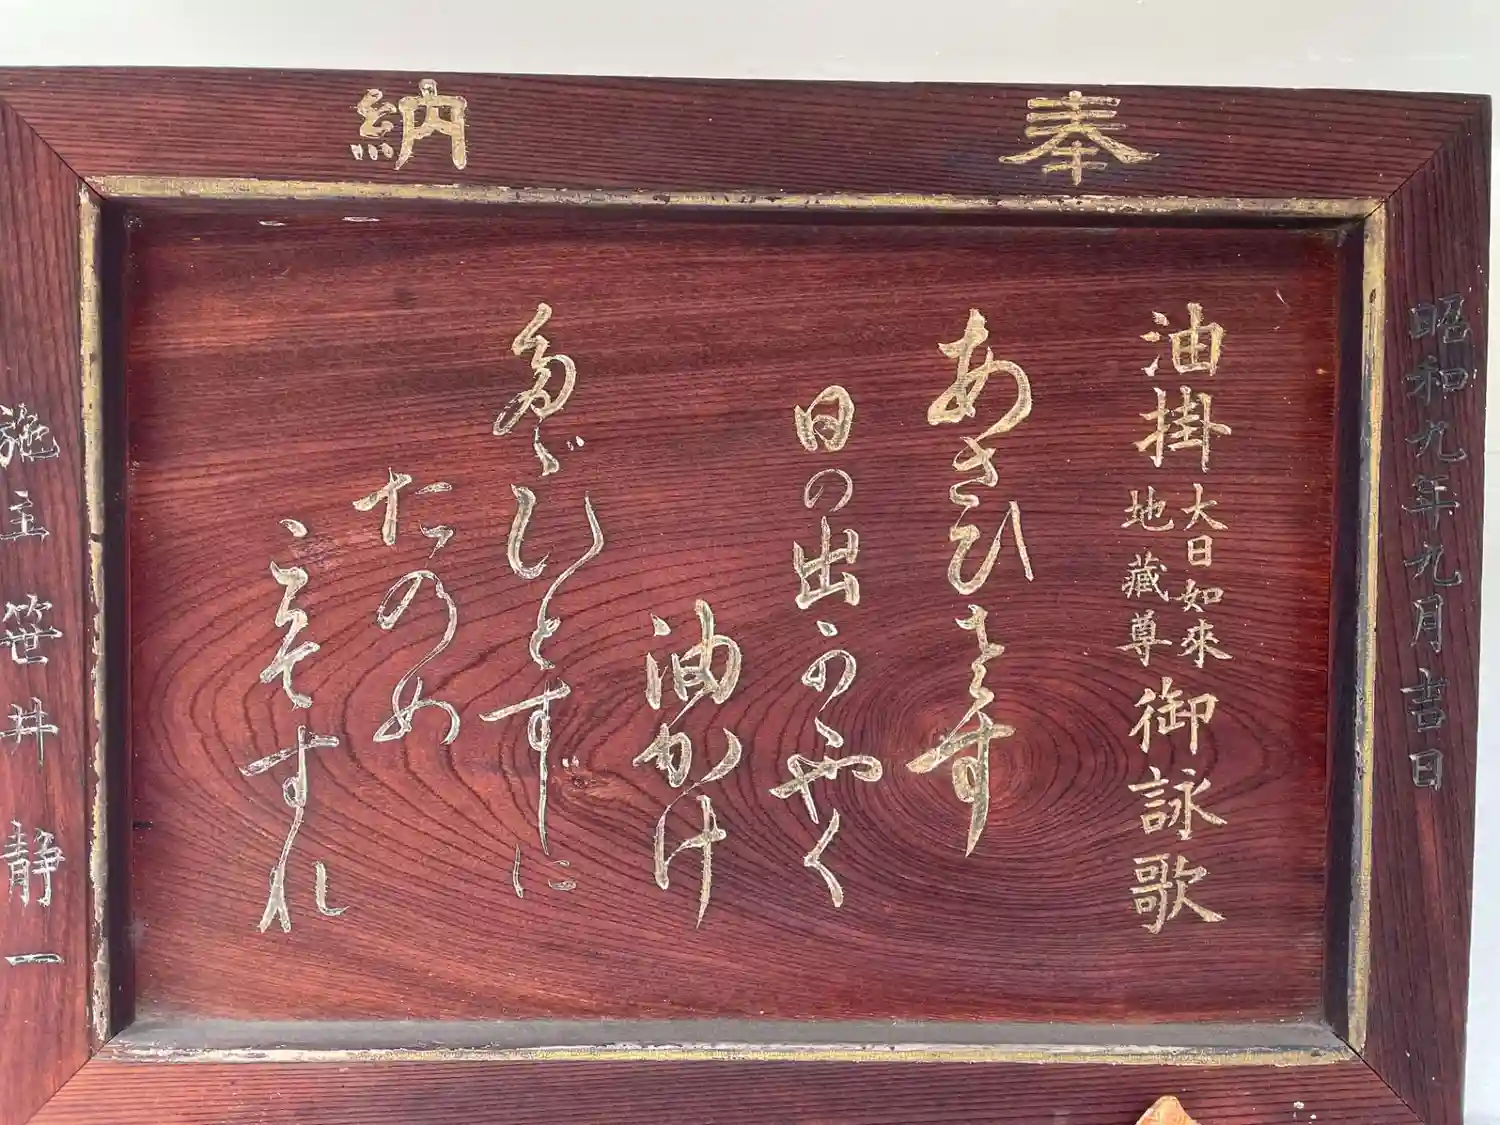 奉納
昭和九年九月吉日
油掛 大日如來 地藏尊 御詠歌
あさひさす
日の出かゝやく
油かけ
たゞひとすじに
たのめ
こそすれ
施主 笹井 静一